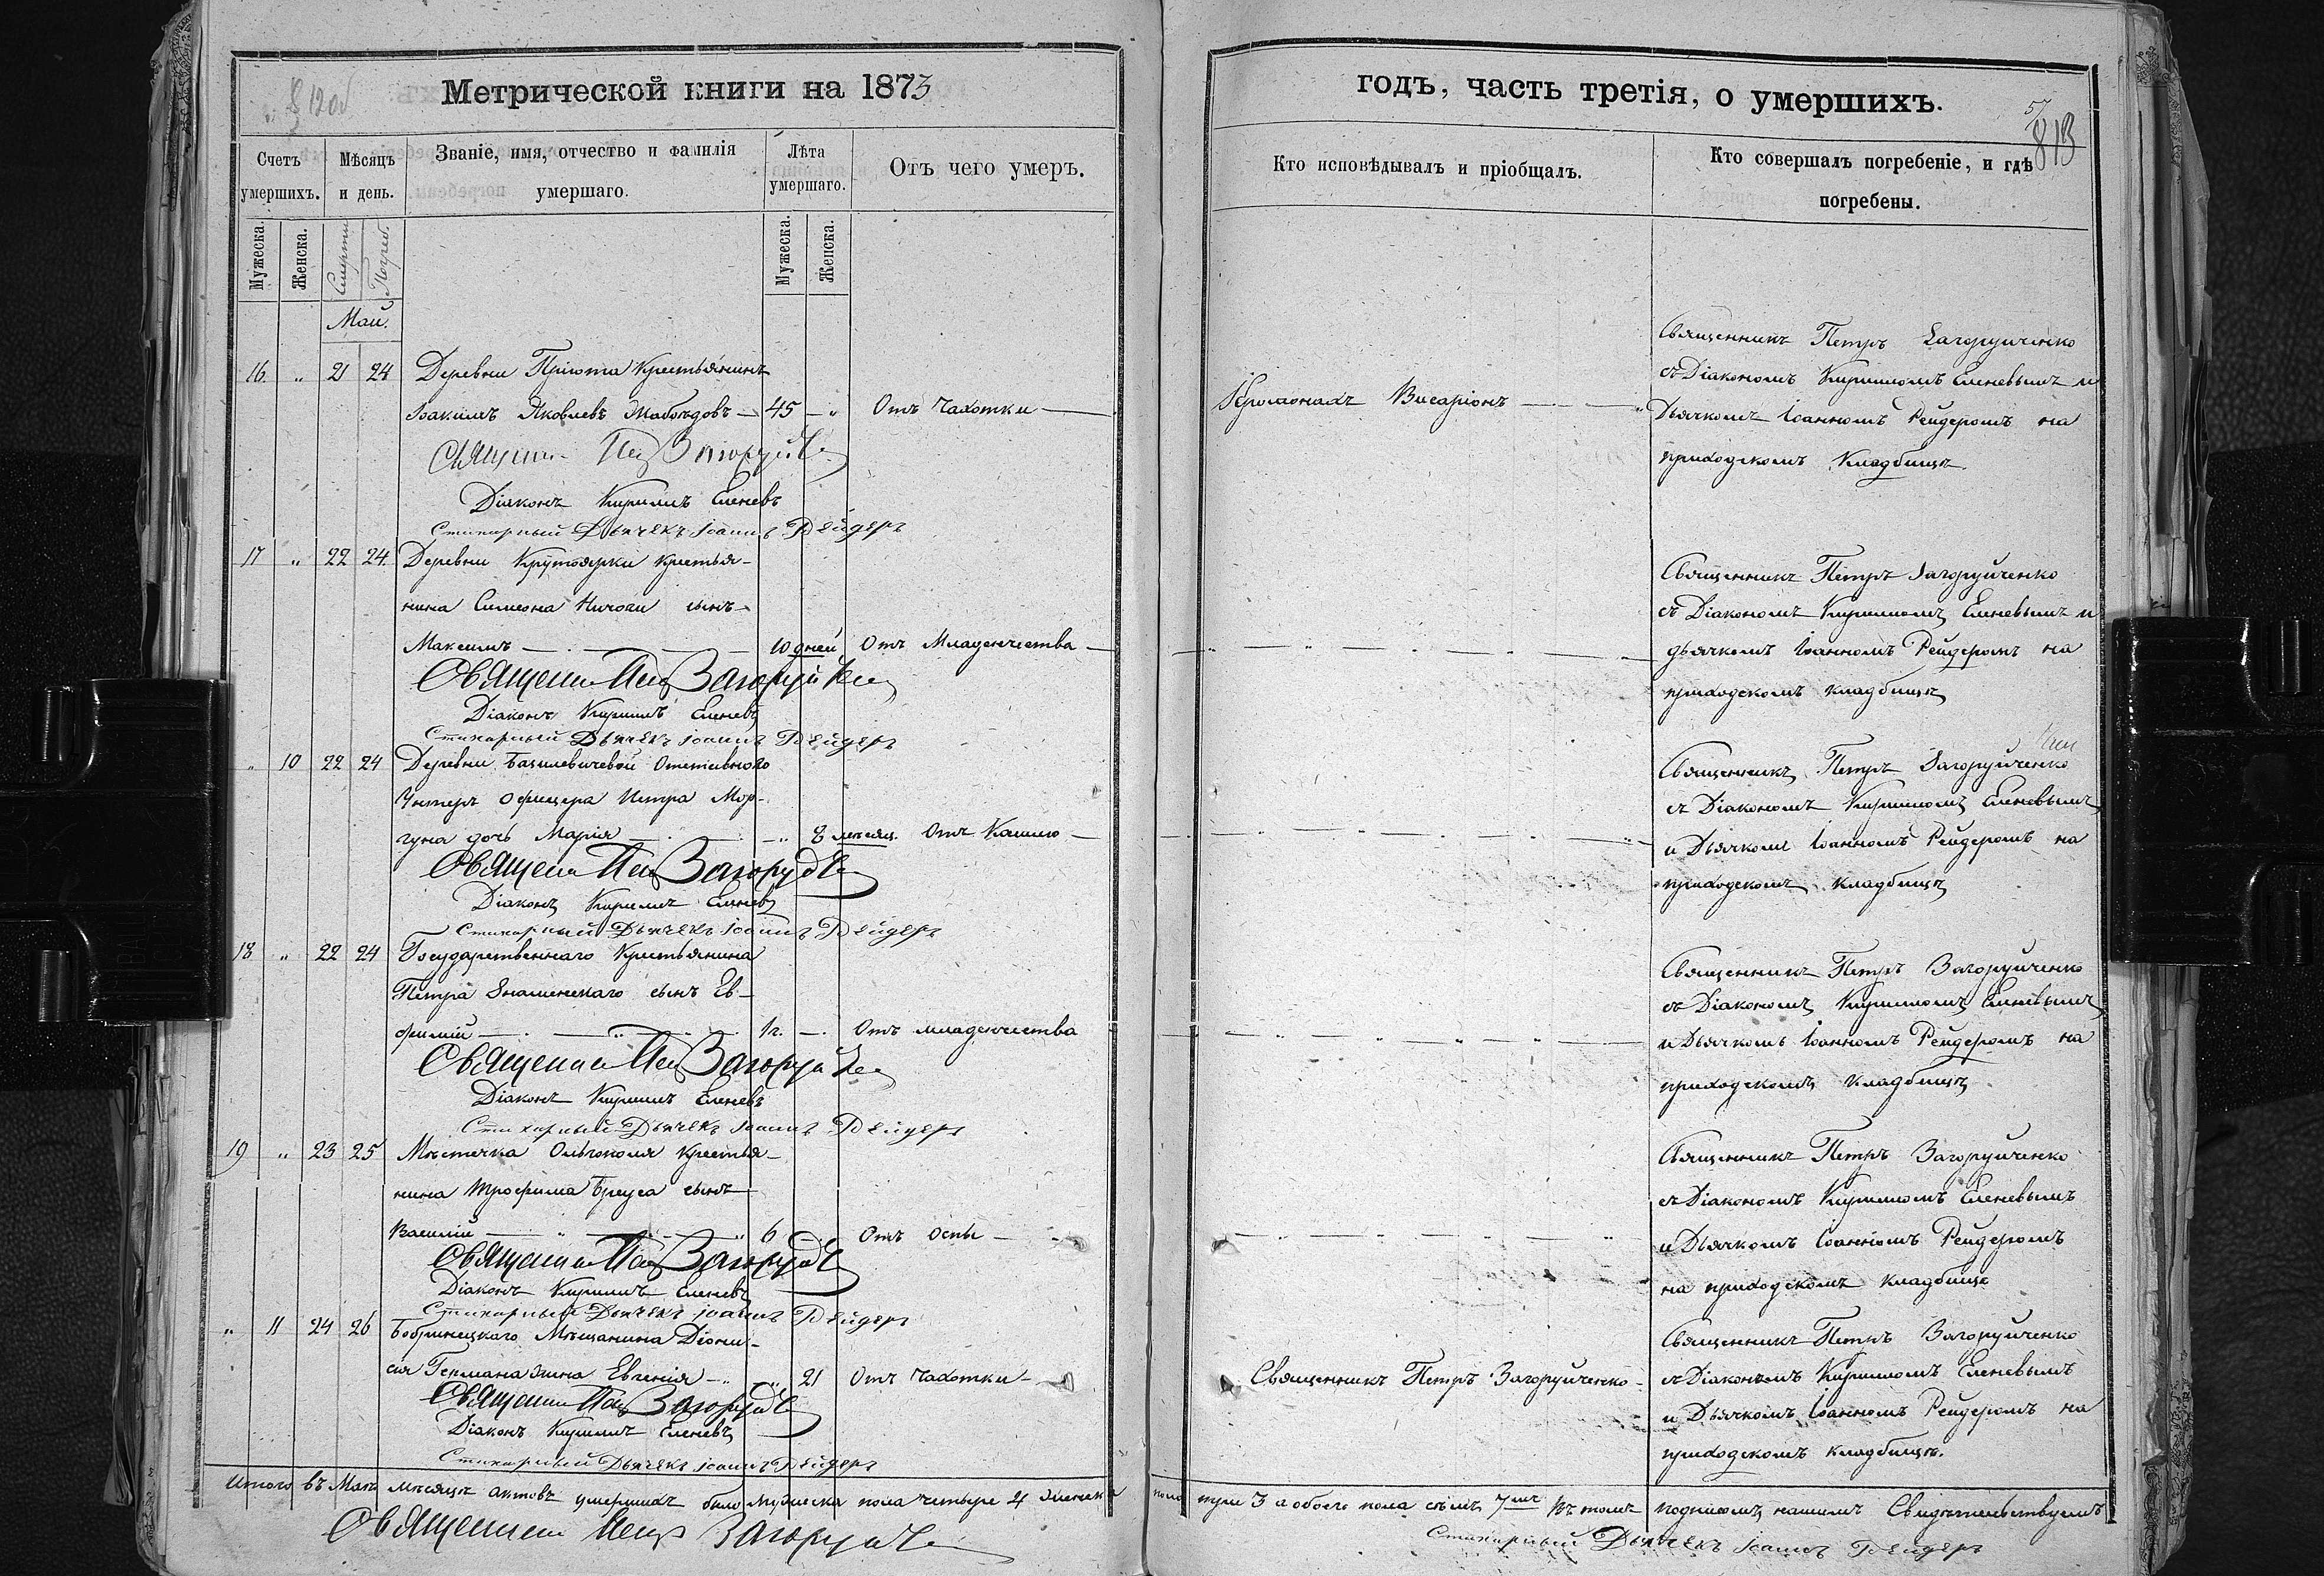 Метрической книги на 1873
Счетъ умершихъ.
Мѣсяцъ и день.
Званіе, имя, отчество и фамилія умершаго.
Лѣта умершаго.
Отъ чего умеръ.
Мужеска.
Женска.
Смерти
Погреб.
Мужеска.
Женска.
Маи.
16 „ 21 24 Деревни Пріюта Крестьянинъ
Іоакимъ Яковлевъ — 45 — „ Отъ Чахотки —
Діаконъ Кириллъ Еленевъ
Стихарный Дьячекъ Іоаннъ Рейдеръ
17 „ 22 24 Деревни Крутоярки Крестья-
нина Симеона сынъ
Максимъ — 10 дней Отъ Младенчества —
Діаконъ Кириллъ Еленевъ
Стихарный Дьячекъ Іоаннъ Рейдеръ
„ 10 22 24 Деревни Базилевичевой Отставного
Унтеръ Офицера Петра Мор-
гуна дочь Марія — „ 8 месяц. Отъ Кашлю —
Діаконъ Кириллъ Еленевъ
Стихарный Дьячекъ Іоаннъ Рейдеръ
18 „ 22 24 Государственнаго Крестьянина
Петра Знаменскаго сынъ Ев-
фимій — 1 г. — Отъ младенчества
Діаконъ Кириллъ Еленевъ
Стихарный Дьячекъ Іоаннъ Рейдеръ
19 „ 23 25 Мѣстечка Ольгополя Крестья-
нина Трофима Бреуса сынъ
Василій — 6 Отъ оспы —
Діаконъ Кириллъ Еленевъ
Стихарный Дьячекъ Іоаннъ Рейдеръ
„ 11 24 26 Бобринецкаго Мѣщанина Діони-
сія Германа жена Евгенія — „ 21 Отъ Чахотки —
Діаконъ Кириллъ Еленевъ
Стихарный Дьячекъ Іоаннъ Рейдеръ
Итого въ Маѣ мѣсяцѣ актовъ умершихъ было мужеска пола четыре 4 женска
годъ, часть третія, о умершихъ.
57
813
Кто исповѣдывалъ и пріобщалъ.
Кто совершалъ погребеніе, и гдѣ погребены.
Священникъ Петръ Загоруйченко
съ Діакономъ Кирилломъ Еленевымъ и
Іеромонахъ Висаріонъ — „ Дьячкомъ Іоанномъ Рейдеромъ на
приходскомъ Кладбищѣ
Священникъ Петръ Загоруйченко
съ Діакономъ Кирилломъ Еленевымъ и
дьячкомъ Іоанномъ Рейдеромъ на
приходскомъ кладбищѣ
Священникъ Петръ Загоруйченко
съ Діакономъ Кирилломъ Еленевымъ
и Дьячкомъ Іоанномъ Рейдеромъ на
приходскомъ кладбищѣ
Священникъ Петръ Загоруйченко
съ Діакономъ Кирилломъ Еленевымъ
и Дьячкомъ Іоанномъ Рейдеромъ на
приходскомъ кладбищѣ
Священникъ Петръ Загоруйченко
съ Діакономъ Кирилломъ Еленевымъ
и Дьячкомъ Іоанномъ Рейдеромъ
на приходскомъ кладбище
Священникъ Петръ Загоруйченко
Священникъ Петръ Загоруйченко — съ Діакономъ Кирилломъ Еленевымъ
и Дьячкомъ Іоанномъ Рейдеромъ на
приходскомъ кладбищѣ.
пола три 3 а обоего пола семь 7мъ Въ томъ подписомъ нашимъ Свидѣтельствуемъ
Стихарный Дьячекъ Іоаннъ Рейдеръ